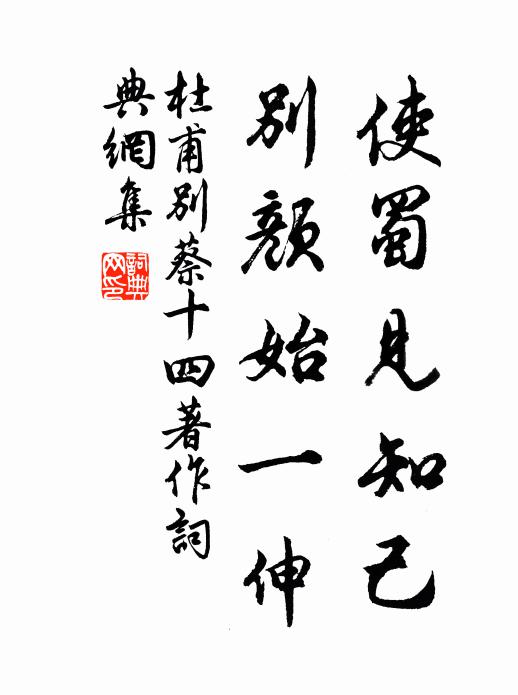 使蜀見知己
別顏始一伸
杜甫別蔡十四著作詞
典網集
詞典網印